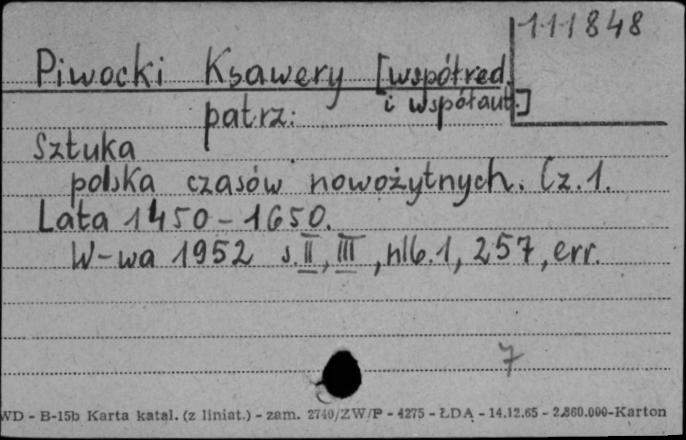 111848
Piwocki Ksawery [współred.
i współaut.]
patrz:
Sztuka
polska czasów nowożytnych. Cz.1.
Lata 1450-1650.
W-wa 1952 s. II, III, nlb.1, 257, err.
7
WD - B-15b Karta katal. (z liniat.) - zam. 2740/ZW/P - 4275 - ŁDA - 14.12.65 - 2.860.000-Karton